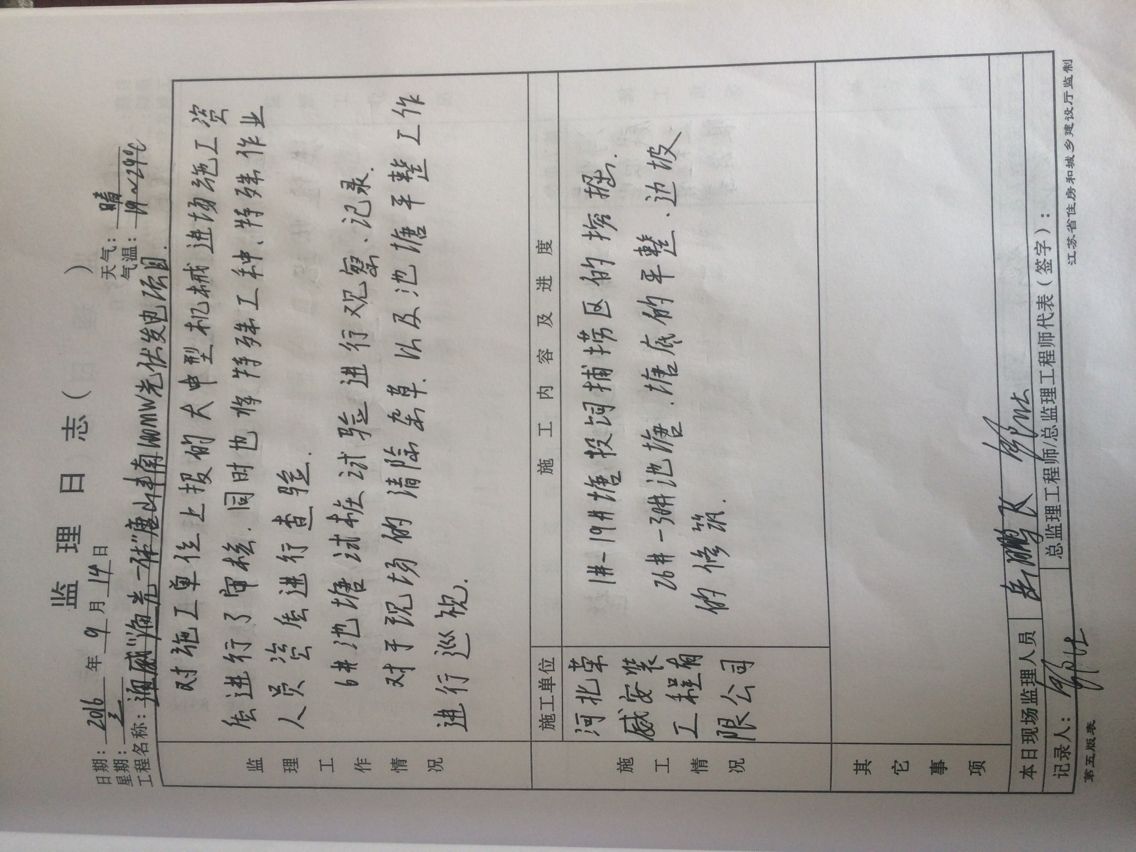 监 理 日 志 （ ）
日期： 2016 年 9 月 14 日 天气： 晴
星期： 三 气温： 19~29℃
工程名称： 通威"渔光一体"唐山丰南100MW光伏发电项目.
监理工作情况
对施工单位上报的大中型机械进场施工资
质进行了审核.同时也将特殊工种、特殊作业
人员资质进行查验.
6#池塘试桩试验进行观察、记录.
对于现场的清除杂草.以及池塘平整工作
进行巡视.
施工情况
施工单位 施 工 内 容 及 进 度
河北荣
威安装
工程有
限公司
1#-19#塘投饲捕捞区的挖掘.
26#-30#池塘.塘底的平整、边坡
的修筑.
其它事项
本日现场监理人员 鹏飞
记录人： 总监理工程师/总监理工程师代表（签字）：
第五版表 江苏省住房和城乡建设厅监制